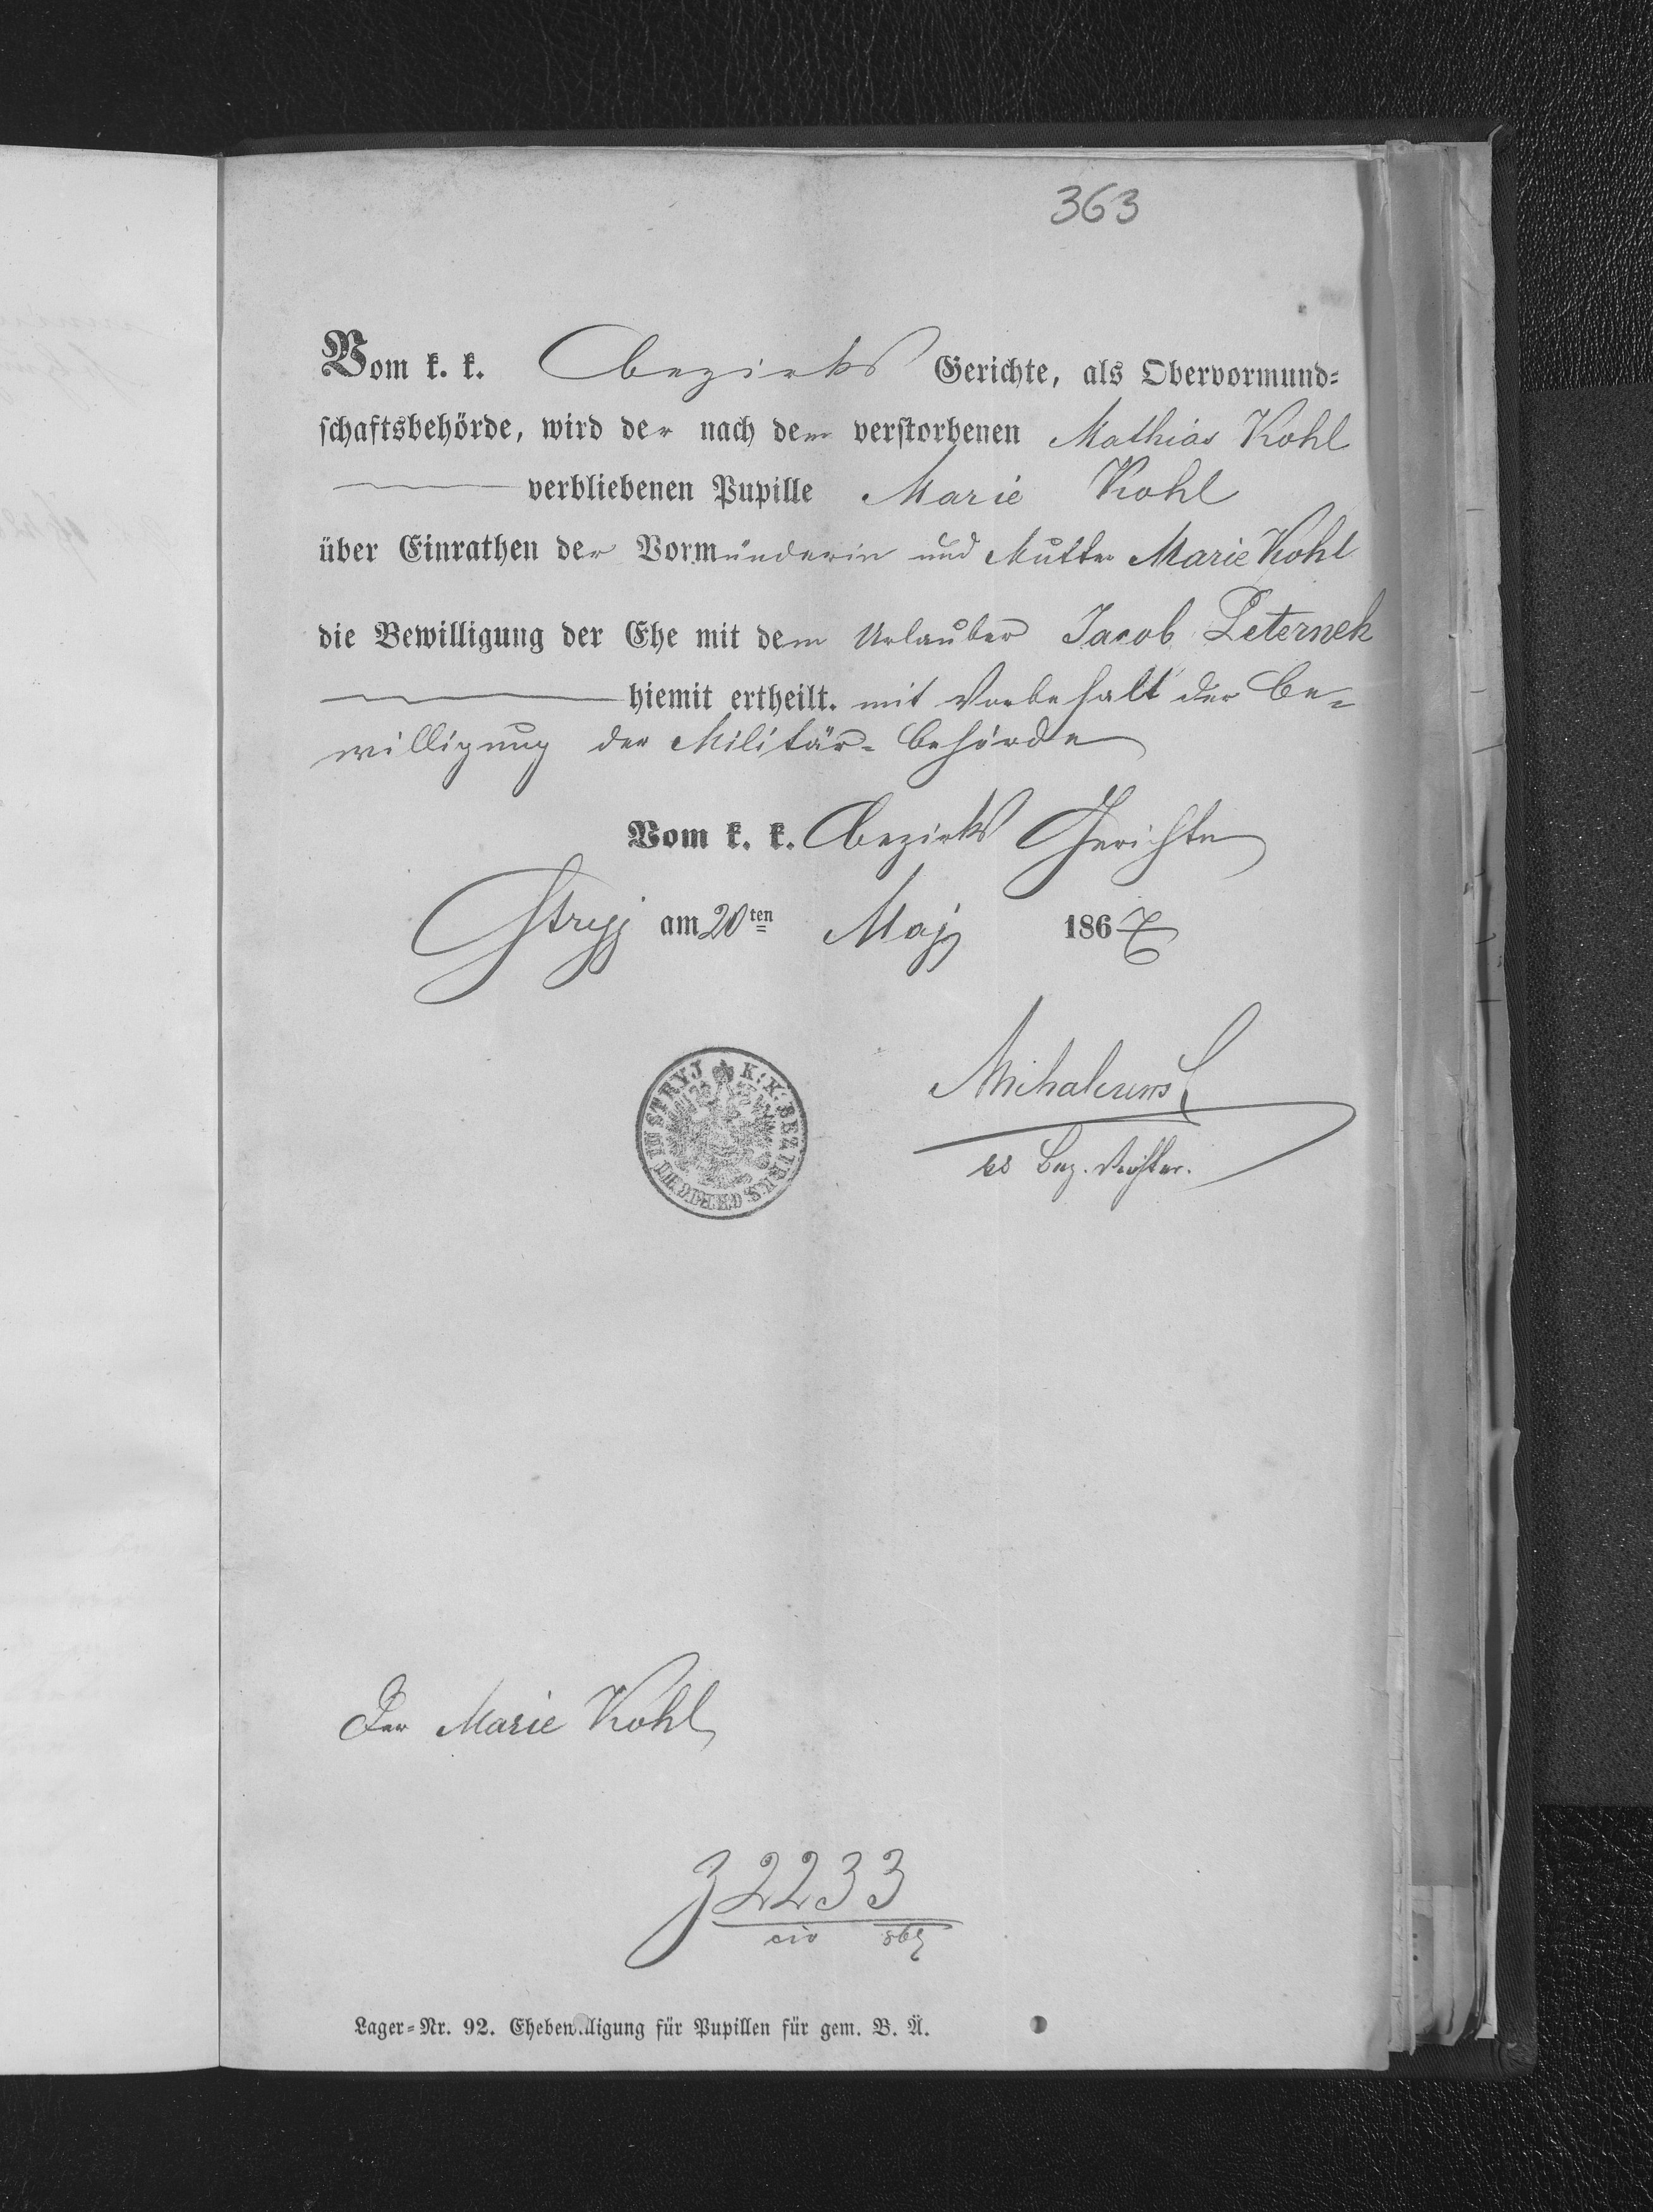 363
Vom k. k. Bezirks Gerichte, als Obervormund=
schaftsbehörde, wird der nach dem verstorbenen Mathias Kohl
verbliebenen Pupille Marie Kohl
über Einrathen der Vormünderin und Mutter Marie Kohl
die Bewilligung der Ehe mit dem Urlauber Jacob Peternek
hiemit ertheilt. mit Vorbehalt der Be=
willigung der Militär=Behörde
Vom k. k. Bezirks Gerichte
Stryj am 20ten Maj 1867
K. K. BEZIRKS-GERICHT IN STRYJ
Bez. Richter.
Der Marie Kohl
Z 2233
civ 867
Lager=Nr. 92. Ehebewilligung für Pupillen für gem. B. Ä.